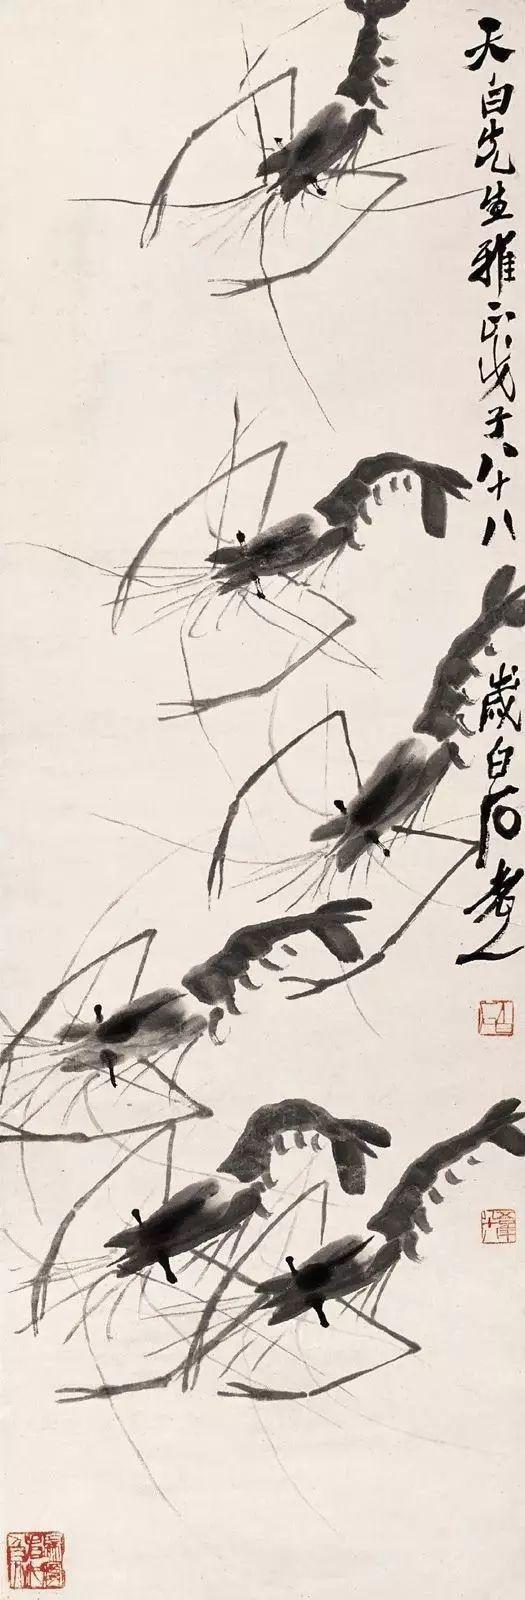 天白先生雅正戊子八十八歲白石老人
白石